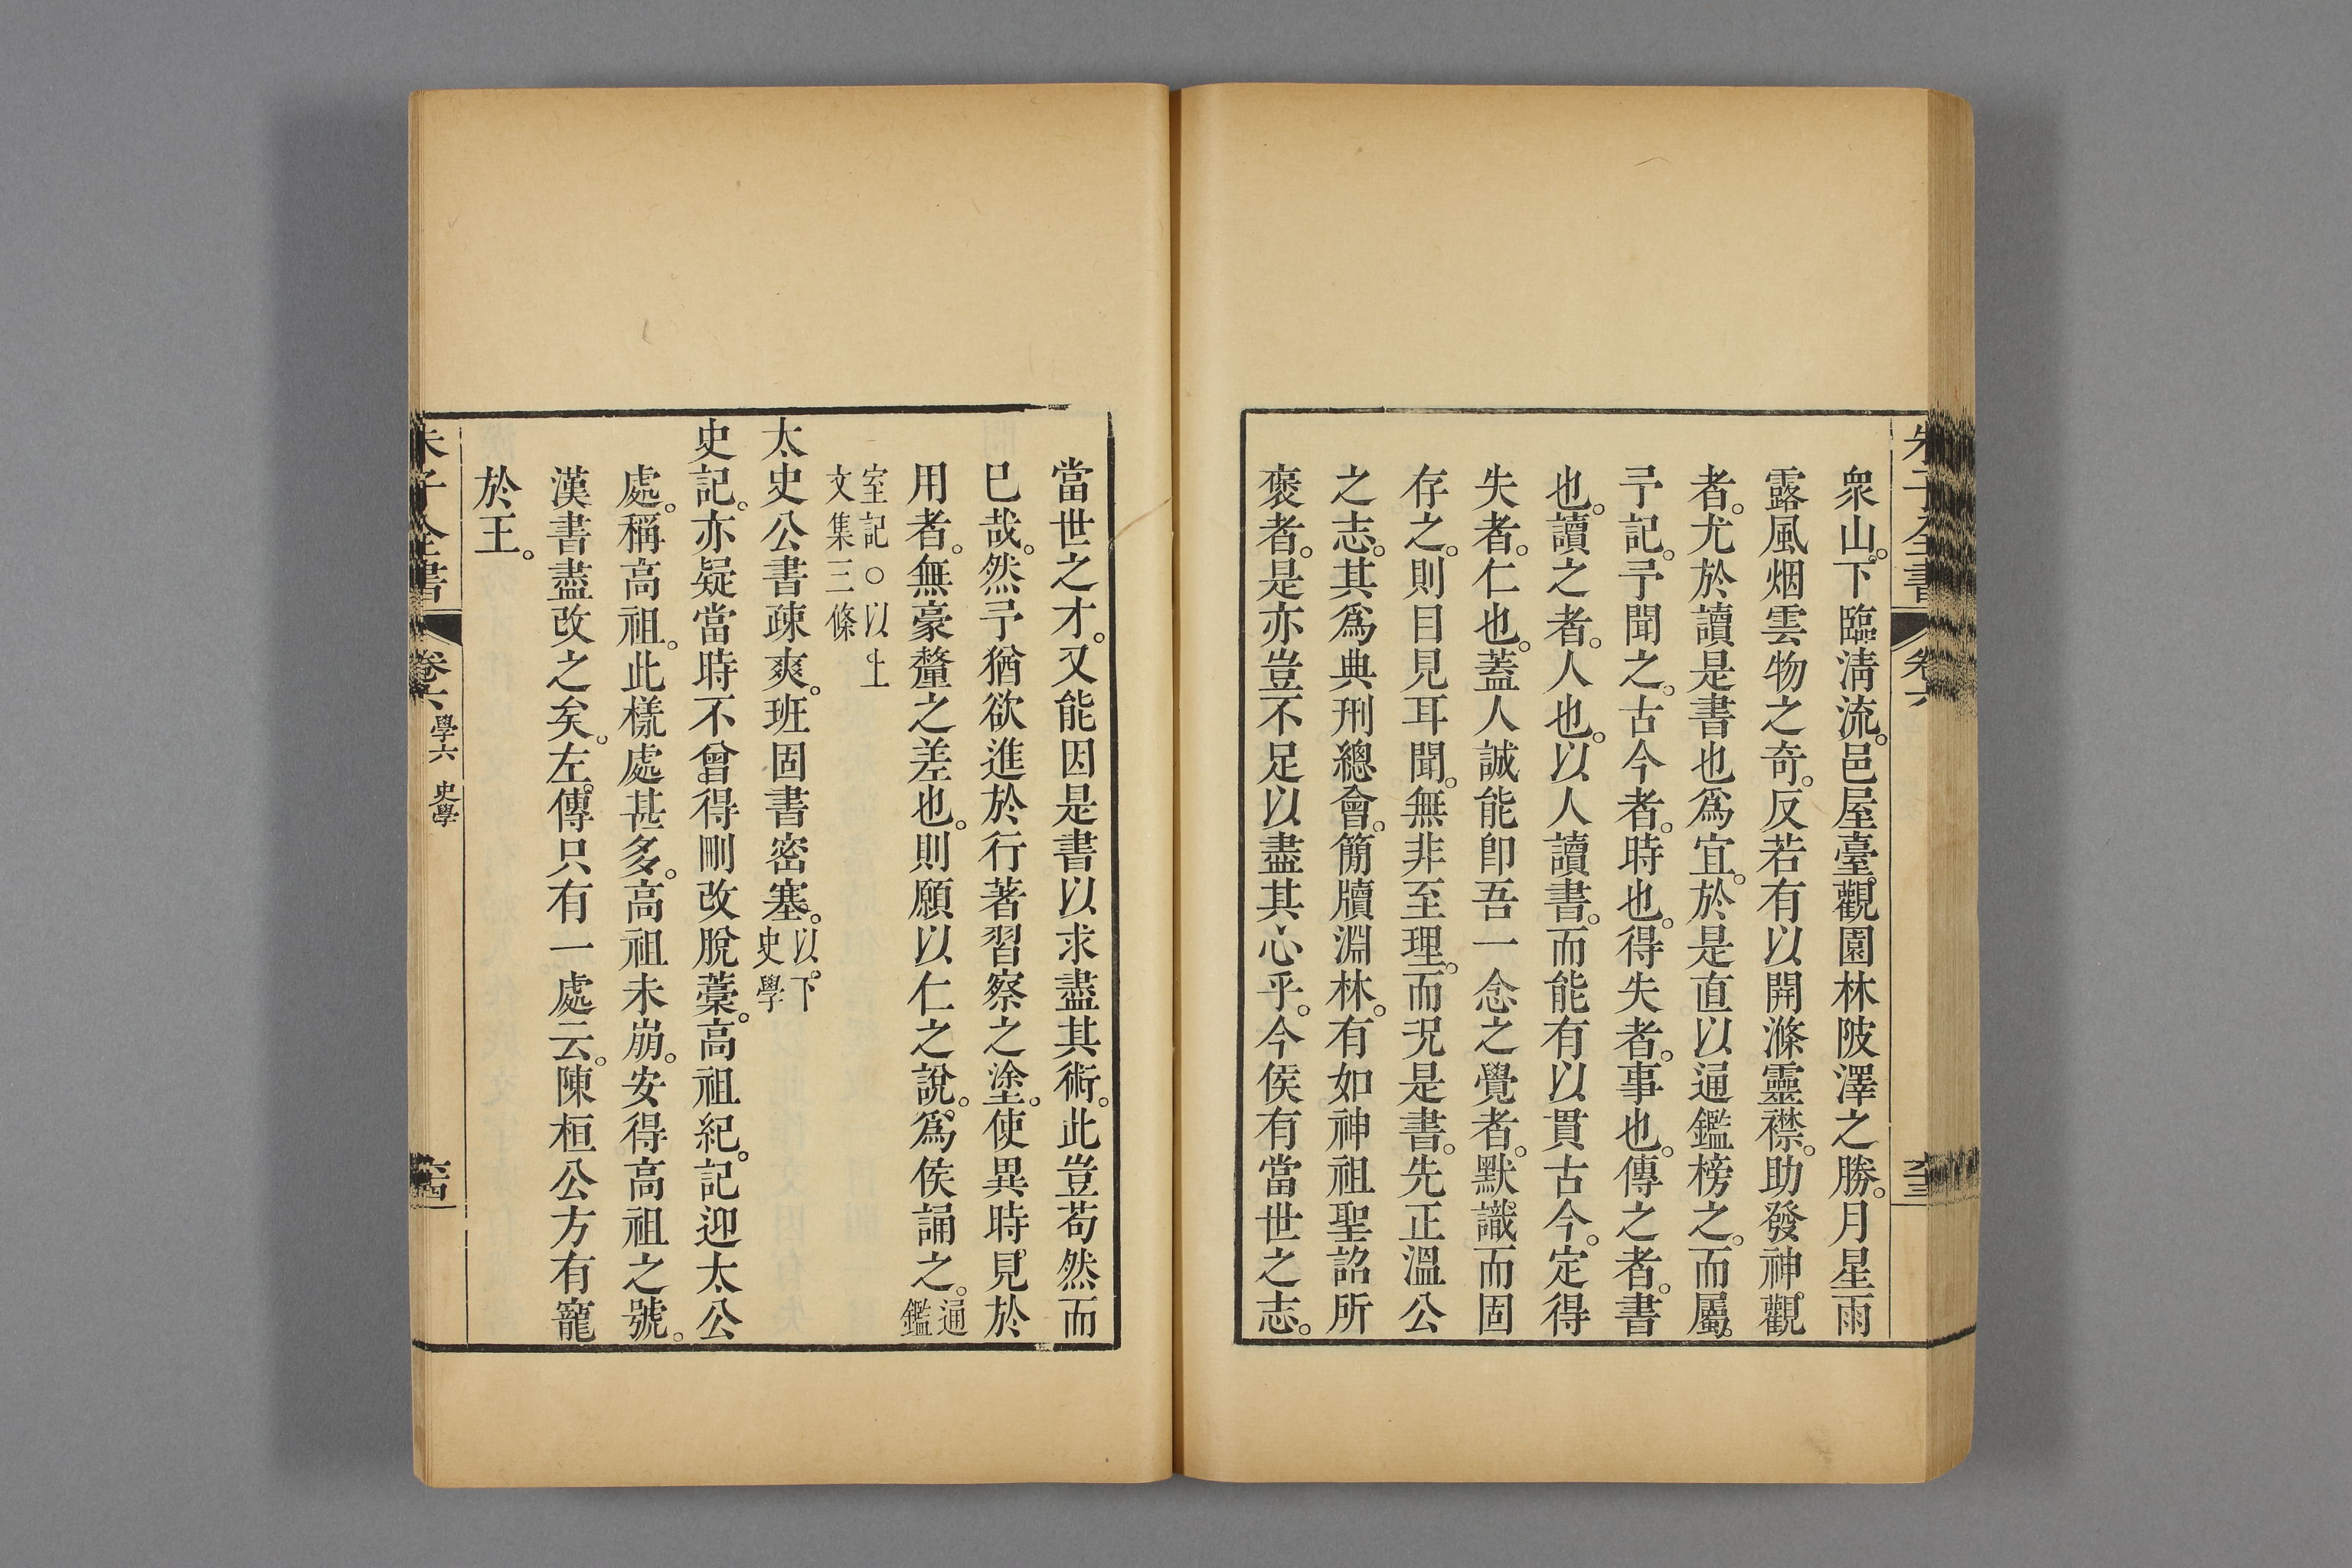 朱子全書 卷六 六三
衆山。下臨淸流。邑屋臺觀。園林陂澤之勝。月星雨
露風烟雲物之奇。反若有以開滌靈襟。助發神觀
者。尤於讀是書也爲宜。於是直以通鑑榜之。而屬
予記。予聞之。古今者。時也。得失者。事也。傳之者。書
也。讀之者。人也。以人讀書。而能有以貫古今。定得
失者。仁也。蓋人誠能卽吾一念之覺者。默識而固
存之。則目見耳聞。無非至理。而况是書。先正溫公
之志。其爲典刑總會。簡牘淵林。有如神祖聖詔所
褒者。是亦豈不足以盡其心乎。今侯有當世之志。
當世之才。又能因是書以求盡其術。此豈苟然而
已哉。然予猶欲進於行著習察之塗。使異時見於
用者。無豪釐之差也。則願以仁之說。爲侯誦之。通鑑
室記○以上文集三條
太史公書疎爽。班固書密塞。以下史學
史記。亦疑當時不曾得刪改脫藁。高祖紀。記迎太公
處。稱高祖。此樣處甚多。高祖未崩。安得高祖之號。
漢書盡改之矣。左傳只有一處云。陳桓公方有寵
於王。
朱子全書 卷六 學六 史學 六四